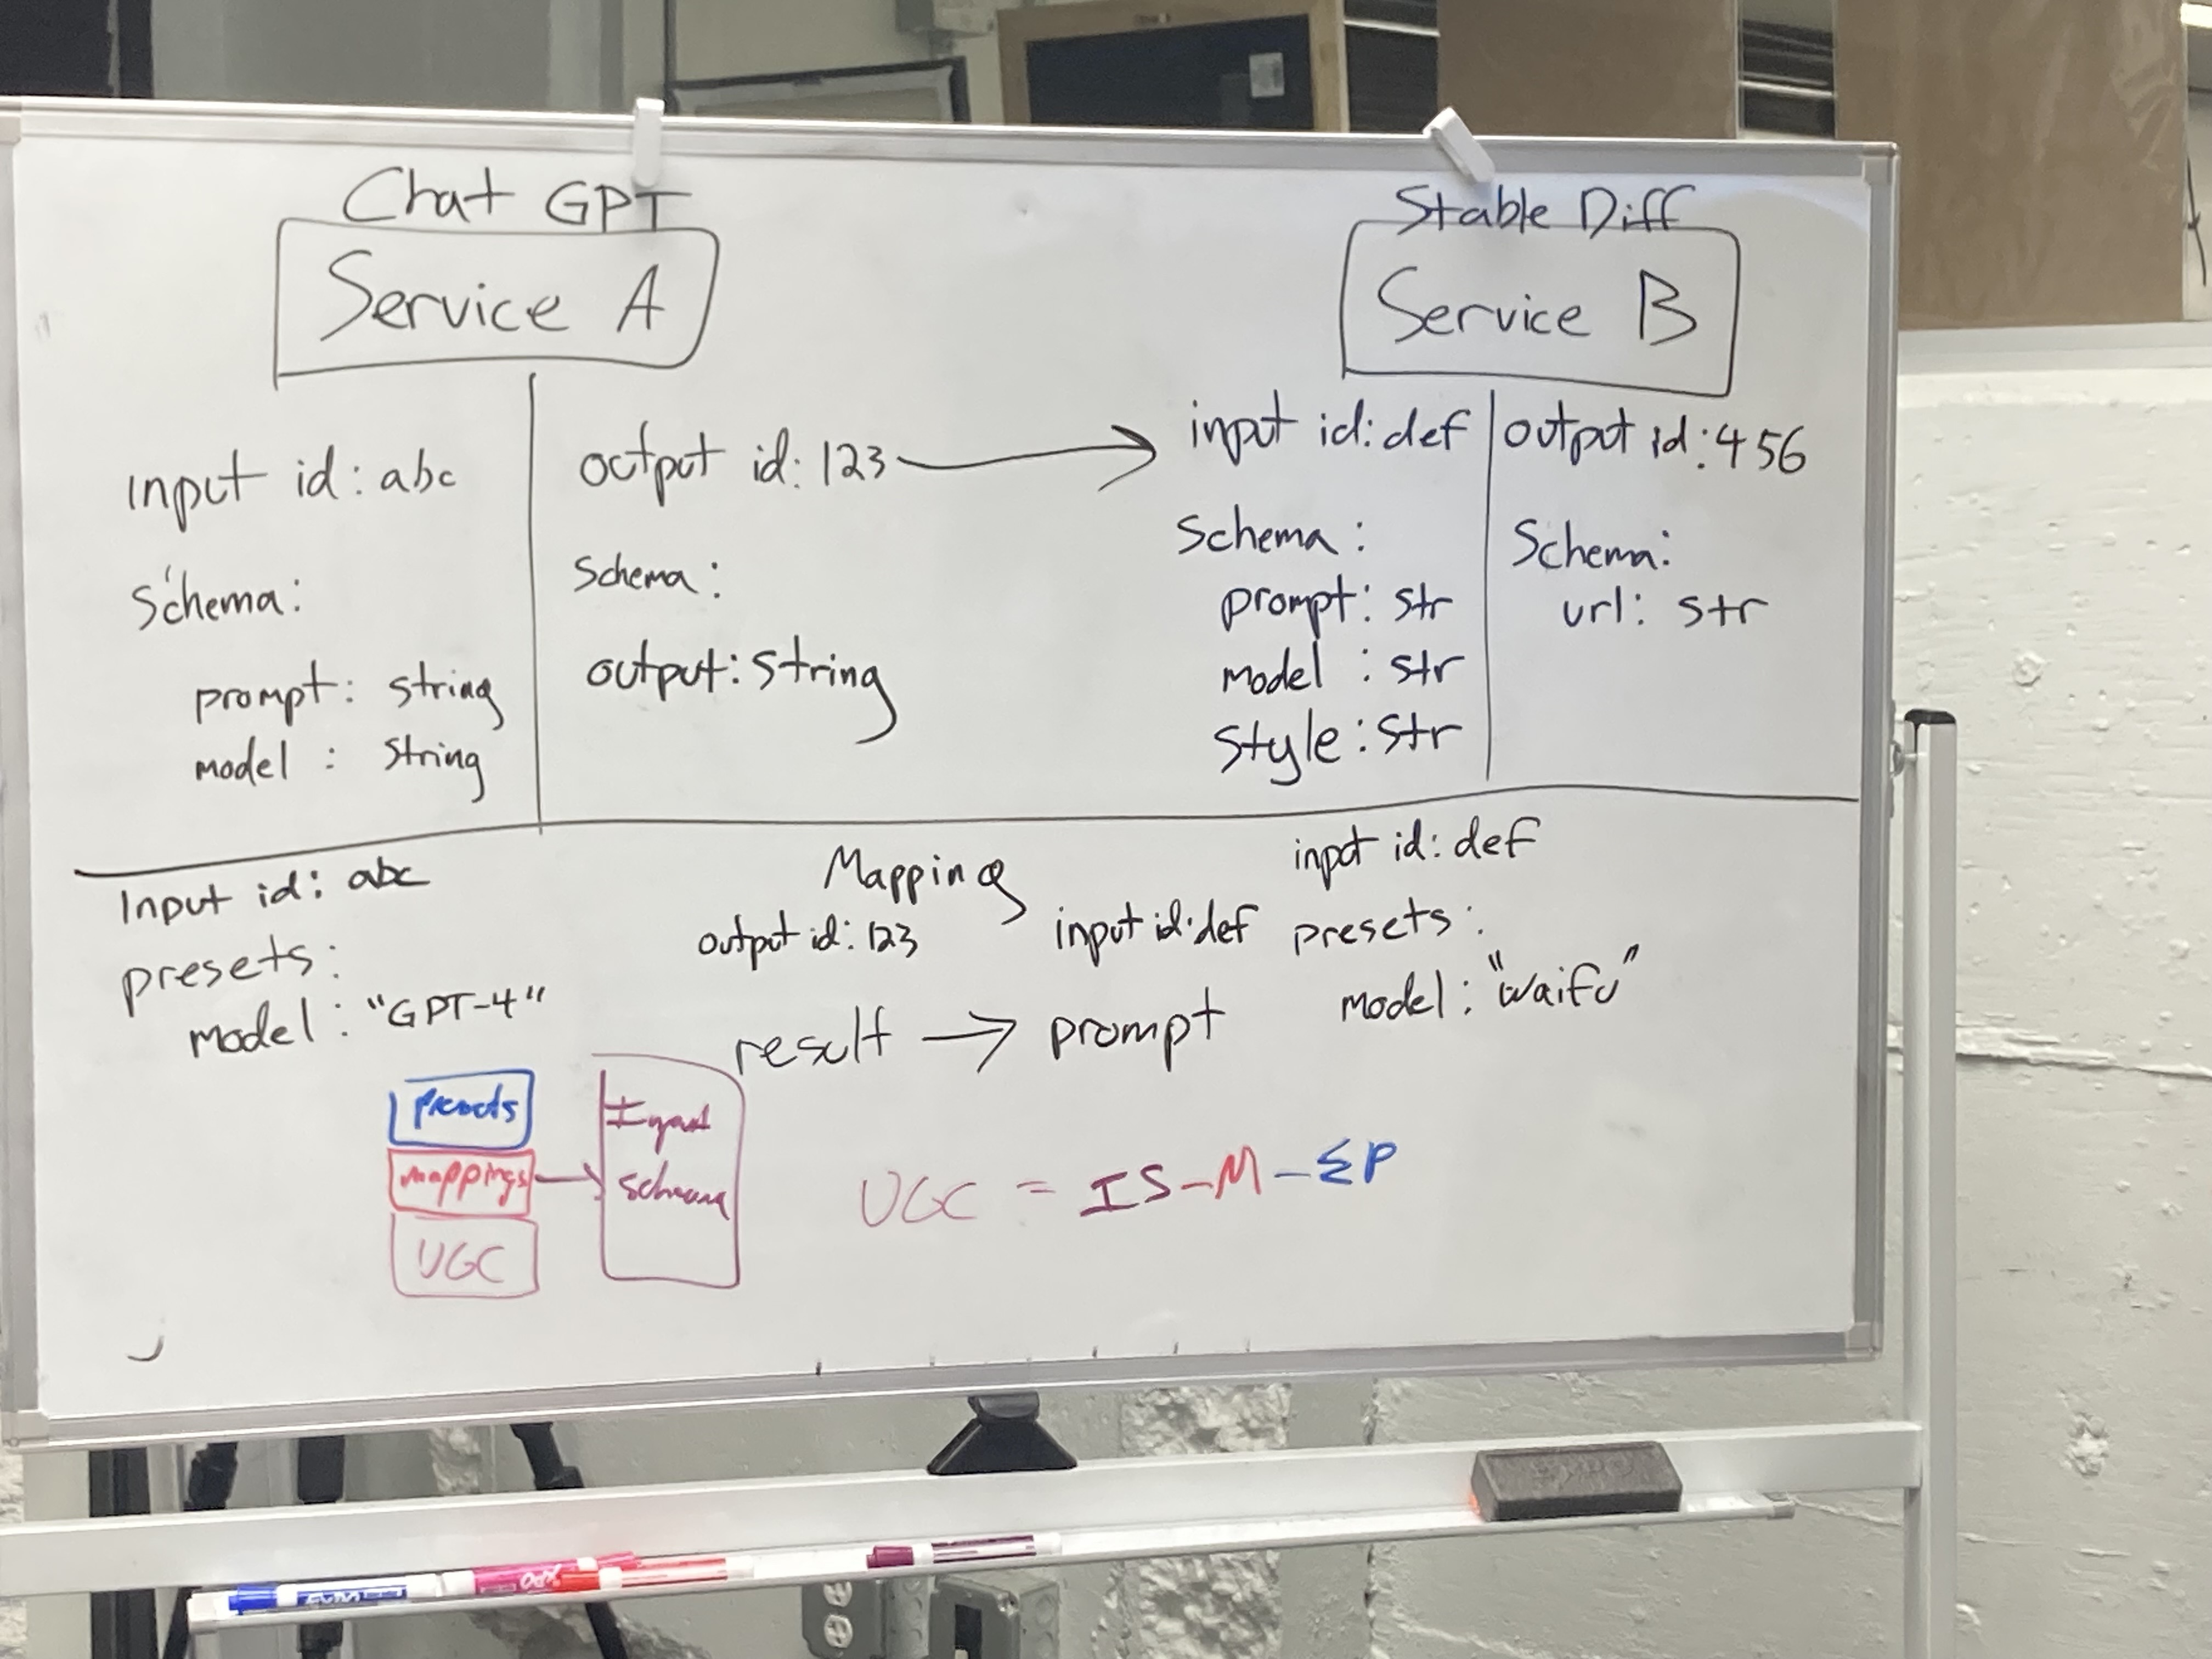 Chat GPT
Service A
input id: abc
Schema:
prompt: string
model : string
output id: 123
Schema:
output: string
Stable Diff
Service B
input id: def
Schema:
prompt: str
model : str
style: str
output id: 456
Schema:
url: str
Input id: abc
presets:
model: "GPT-4"
Mapping
output id: 123 input id: def
result → prompt
input id: def
presets:
model: "waifu"
presets
mappings
UGC
Input
schema
UGC = IS - M - ΣP
EXPO